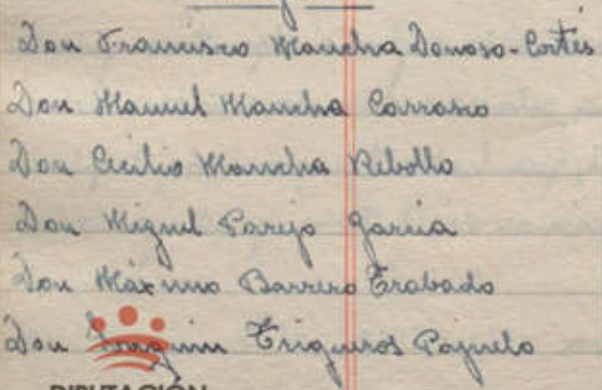 Don Francisco Mancha Donoso-Cortés
Don Manuel Mancha Carrasco
Don Cecilio Mancha Rebollo
Don Miguel Parejo García
Don Máximo Barrero Trabado
Don Joaquin Trigueros Pozuelo
DIPUTACIÓN